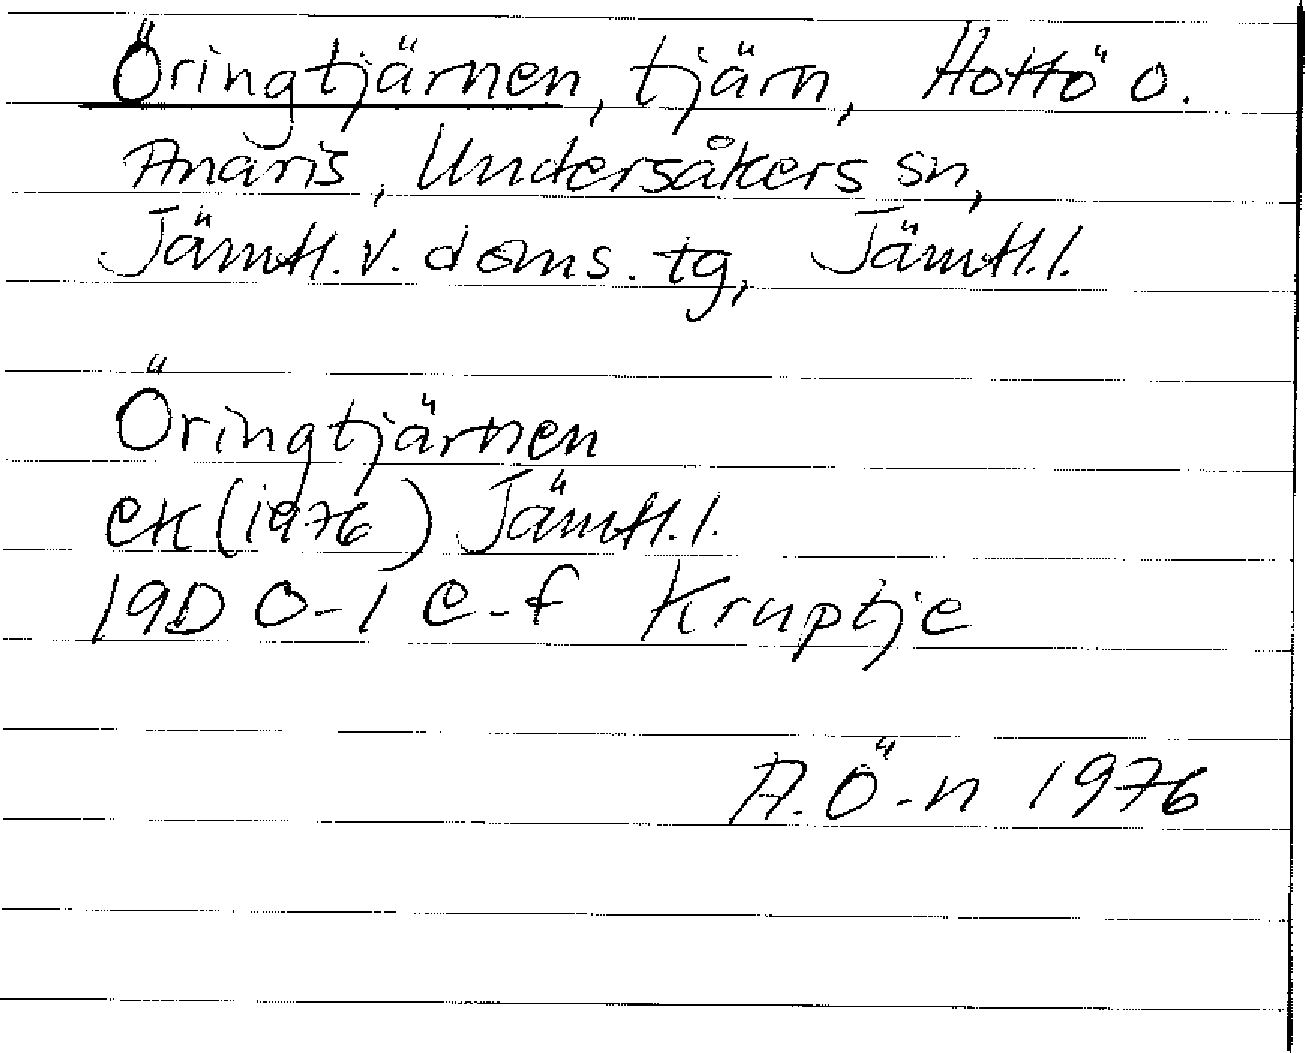 Öringtjärnen, tjärn, Hottö o.
Anåris, Undersåkers sn,
Jämtl. v. doms. tg, Jämtl. l.
Öringtjärnen
ek (1976) Jämtl. l.
19D 0-1 e-f Kruptje
A. Ö-n 1976